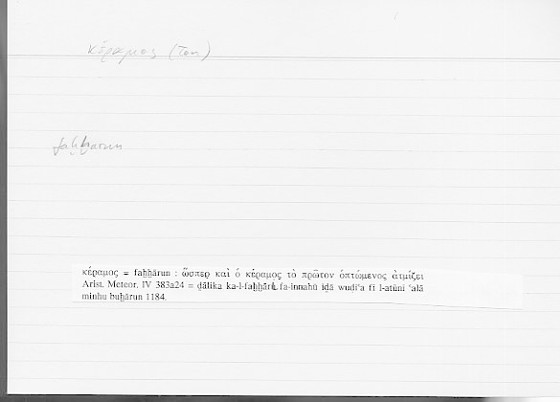 κέραμος (Ton)
faḫḫārun
κέραμος = faḫḫārun : ὥσπερ καὶ ὁ κέραμος τὸ πρῶτον ὀπτώμενος ἀτμίζει
Arist. Meteor. IV 383a24 = ḏālika ka-l-faḫḫāri, fa-innahū iḏā wuḍiʿa fī l-atūni ʿalā
minhu buḫārun 1184.